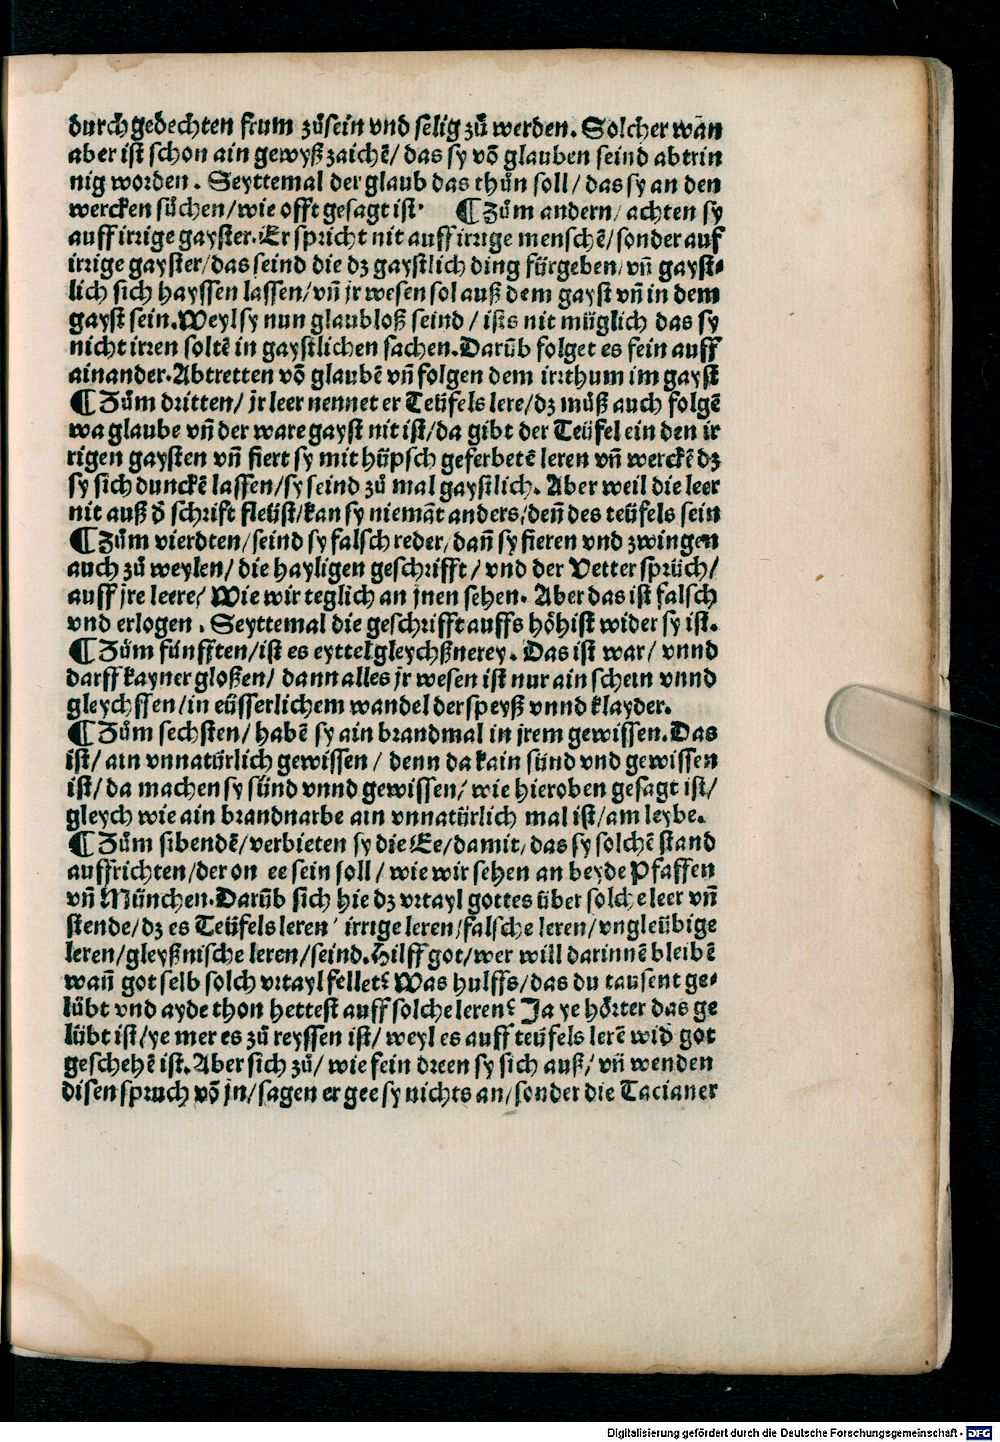 durch gedechten frum zůsein vnd selig zů werden. Solcher wan
aber ist schon ain gewyß zaichē/ das sy vō glauben seind abtrin
nig worden. Seyttemal der glaub das thůn soll/ das sy an den
wercken sůchen/wie offt gesagt ist. ¶ Zům andern/ achten sy
auff irrige gayster. Er spricht nit auff irrige menschē/sonder auf
irrige gayster/das seind die dz gaystlich ding fürgeben/vñ gayst⸗
lich sich hayssen lassen/vñ jr wesen sol auß dem gayst vñ in dem
gayst sein. Weyl sy nun glaubloß seind/ ists nit müglich das sy
nicht irren soltē in gaystlichen sachen. Darūb folget es fein auff
ainander. Abtretten vō glaubē vñ folgen dem irrthum im gayst
¶ Zům dritten/ jr leer nennet er Teüfels lere/dz můß auch folgē
wa glaube vñ der ware gayst nit ist/da gibt der Teüfel ein den ir
rigen gaysten vñ fiert sy mit hüpsch geferbetē leren vñ werckē dz
sy sich dunckē lassen/sy seind zů mal gaystlich. Aber weil die leer
nit auß d̄ schrift fleüst/kan sy niemāt anders/deñ des teüfels sein
¶ Zům vierdten/seind sy falsch reder/dañ sy fieren vnd zwingen
auch zů weylen/ die hayligen geschrifft/ vnd der Vetter sprüch/
auff jre leere/ Wie wir teglich an jnen sehen. Aber das ist falsch
vnd erlogen. Seyttemal die geschrifft auffs höhist wider sy ist.
¶ Zům fünfften/ist es eyttel gleychßnerey. Das ist war/ vnnd
darff kayner gloßen/ dann alles jr wesen ist nur ain schein vnnd
gleychssen/in eüsserlichem wandel der speyß vnnd klayder.
¶ Zům sechsten/ habē sy ain brandmal in jrem gewissen. Das
ist/ ain vnnatürlich gewissen/ denn da kain sünd vnd gewissen
ist/ da machen sy sünd vnnd gewissen/ wie hieroben gesagt ist/
gleych wie ain brandnarbe ain vnnatürlich mal ist/am leybe.
¶ Zům sibendē/verbieten sy die Ee/damit/ das sy solchē stand
auffrichten/der on ee sein soll/ wie wir sehen an beyde Pfaffen
vñ München. Darūb sich hie dz vrtayl gottes über solche leer vñ
stende/dz es Teüfels leren/ irrige leren/falsche leren/vngleübige
leren/gleyßnische leren/seind. Hilff got/wer will darinnē bleibē
wañ got selb solch vrtayl fellet? Was hulffs/das du tausent ge⸗
lübt vnd ayde thon hettest auff solche leren? Ja ye hörter das ge
lübt ist/ye mer es zů reyssen ist/ weyl es auff teüfels lerē wid̄ got
geschehē ist. Aber sich zů/ wie fein dreen sy sich auß/ vñ wenden
disen spruch vō jn/sagen er gee sy nichts an/sonder die Tacianer
Digitalisierung gefördert durch die Deutsche Forschungsgemeinschaft - DFG